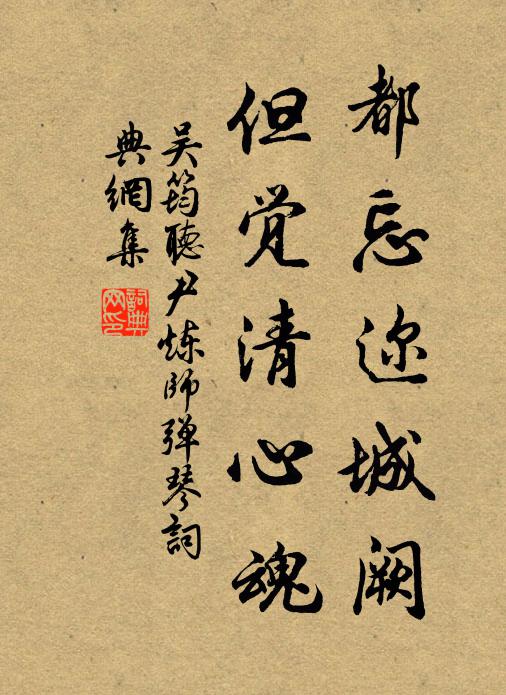 都忘迩城阙
但觉清心魂
吴筠聽尹炼师弹琴詞
典網集
詞典网印